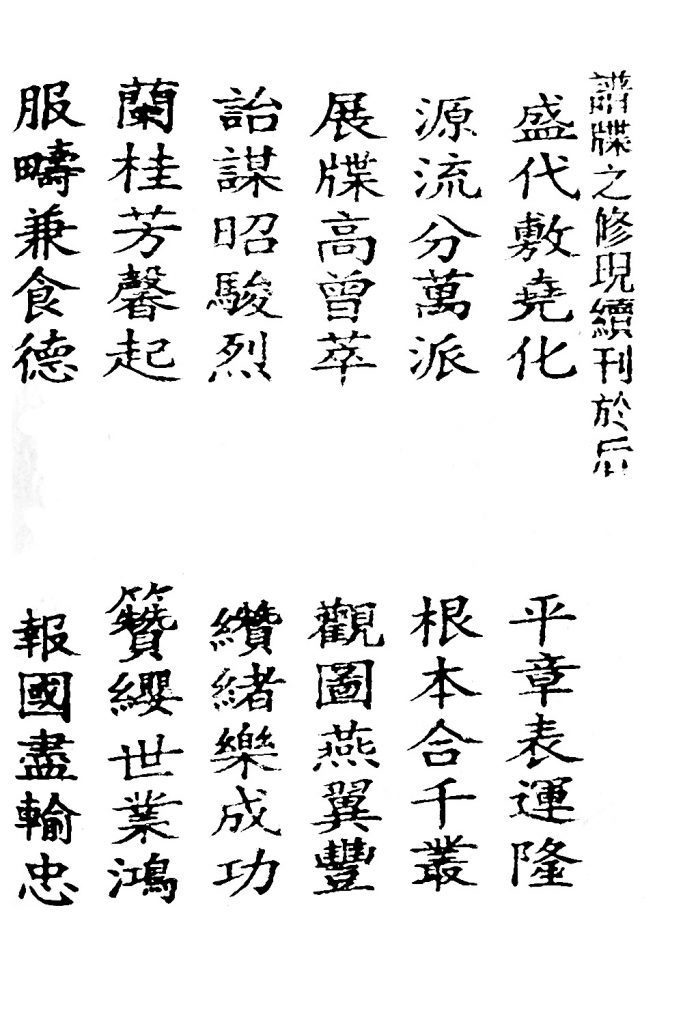 譜牒之修現續刊於后
盛代敷堯化
平章表運隆
源流分萬派
根本合千叢
展牒高曾萃
觀圖燕翼豐
詒謀昭駿烈
纘緒樂成功
蘭桂芳馨起
簪纓世業鴻
服疇兼食德
報國盡輸忠